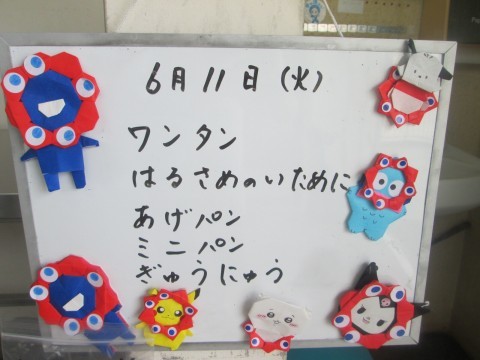 6月11日(火)
ワンタン
はるさめのいために
あげパン
ミニパン
ぎゅうにゅう